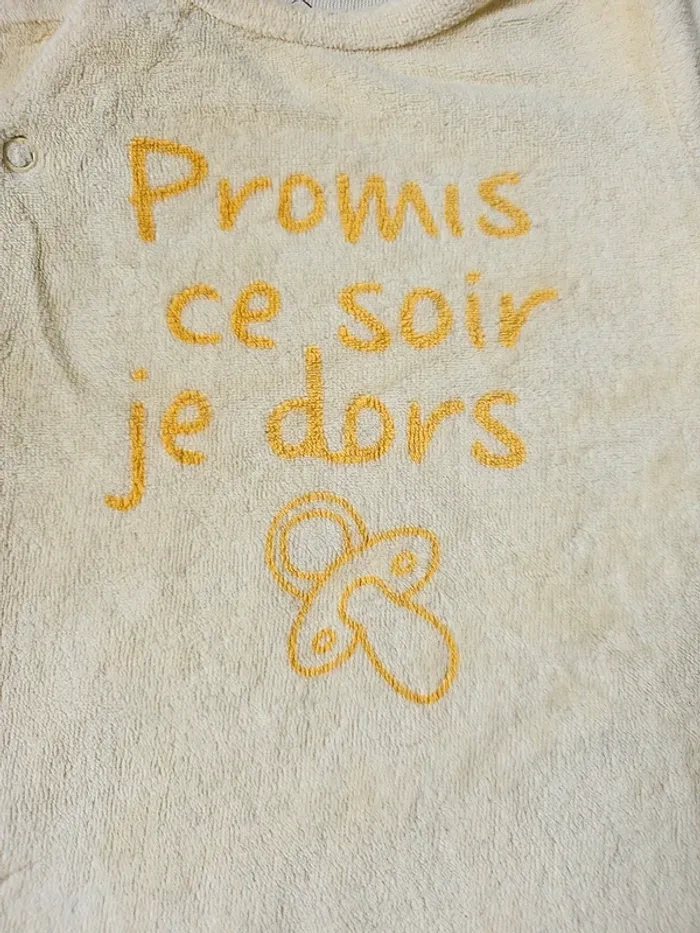 Promis
ce soir
je dors